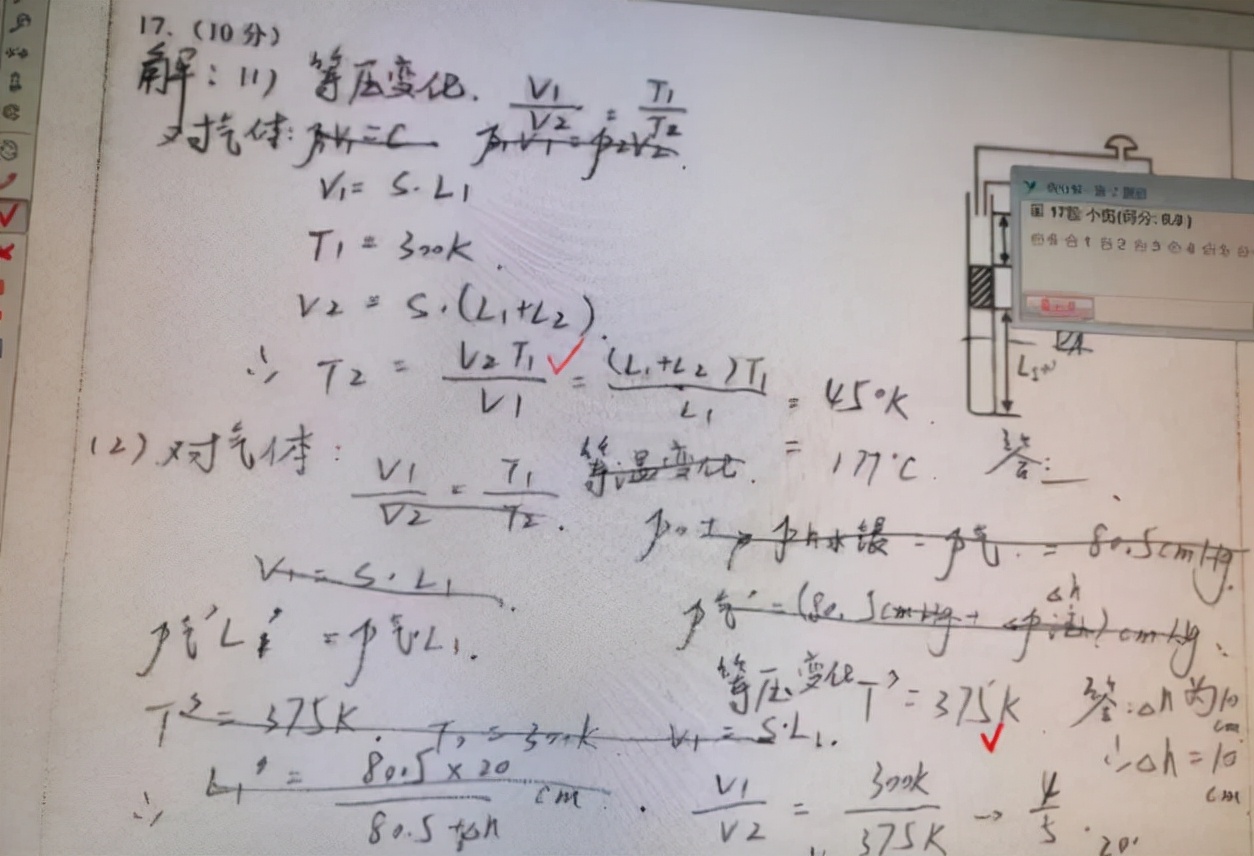 17. (10分)
解: (1) 等压变化. V1/V2 = T1/T2
对气体: p1V1=C p1V1=p2V2.
V1= S·L1
T1 = 300K.
V2 = S·(L1+L2).
∴ T2 = V2T1/V1 = (L1+L2)T1/L1 = 450K.
= 177℃. 答:
(2) 对气体: V1/V2 = T1/T2. 等温变化.
水银 = p气. = 80.5cmHg.
V1 = S·L1.
p气' = (80.5cmHg+ Δh) cmHg
p气'L1' = p气L1.
等压变化 T' = 375K 答:Δh为10cm
T' = 375K. = 300K V1 = S·L1.
∴Δh = 10cm
∴ L1' = 80.5×20/80.5+Δh cm. V1/V2 = 300K/375K → 4/5.
20
17题